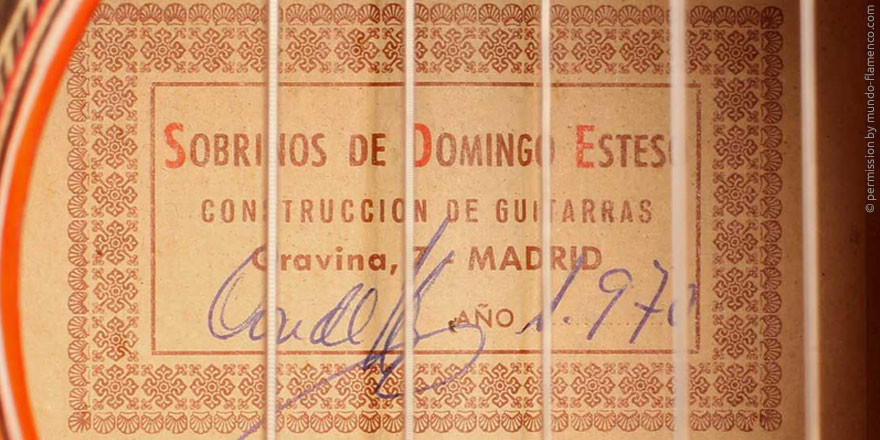 SOBRINOS DE DOMINGO ESTESO
CONSTRUCCION DE GUITARRAS
Gravina, 7 - MADRID
Conde AÑO 1.970
© permission by mundo-flamenco.com